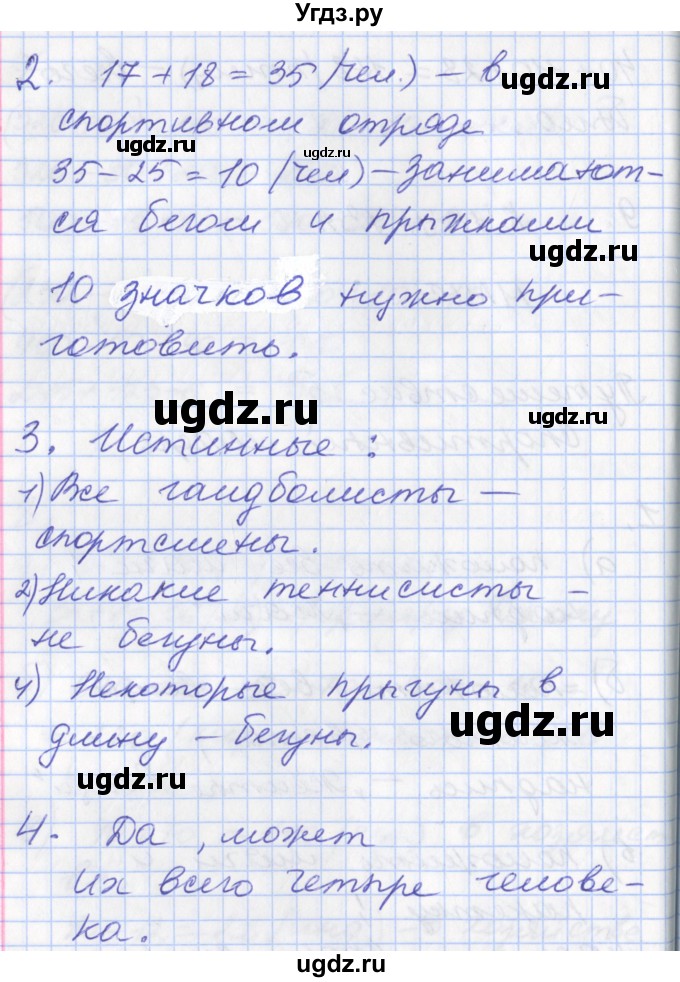 Угдз.ру
2. 17 + 18 = 35 (чел.) – в
спортивном отряде
35 – 25 = 10 (чел) – занимают-
ся бегом и прыжками
10 значков нужно при-
готовить.
3. Истинные:
1) Все гандболисты –
спортсмены.
2) Никакие теннисисты –
не бегуны.
4) Некоторые прыгуны в
длину – бегуны.
4. Да, может
Их всего четыре челове-
ка.
ugdz.ru
ugdz.ru
ugdz.ru
ugdz.ru
ugdz.ru
ugdz.ru
ugdz.ru
ugdz.ru
ugdz.ru